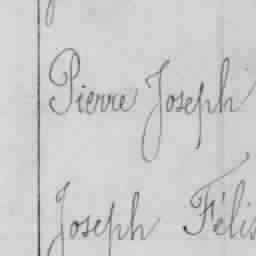 Pierre Joseph
Joseph Félis